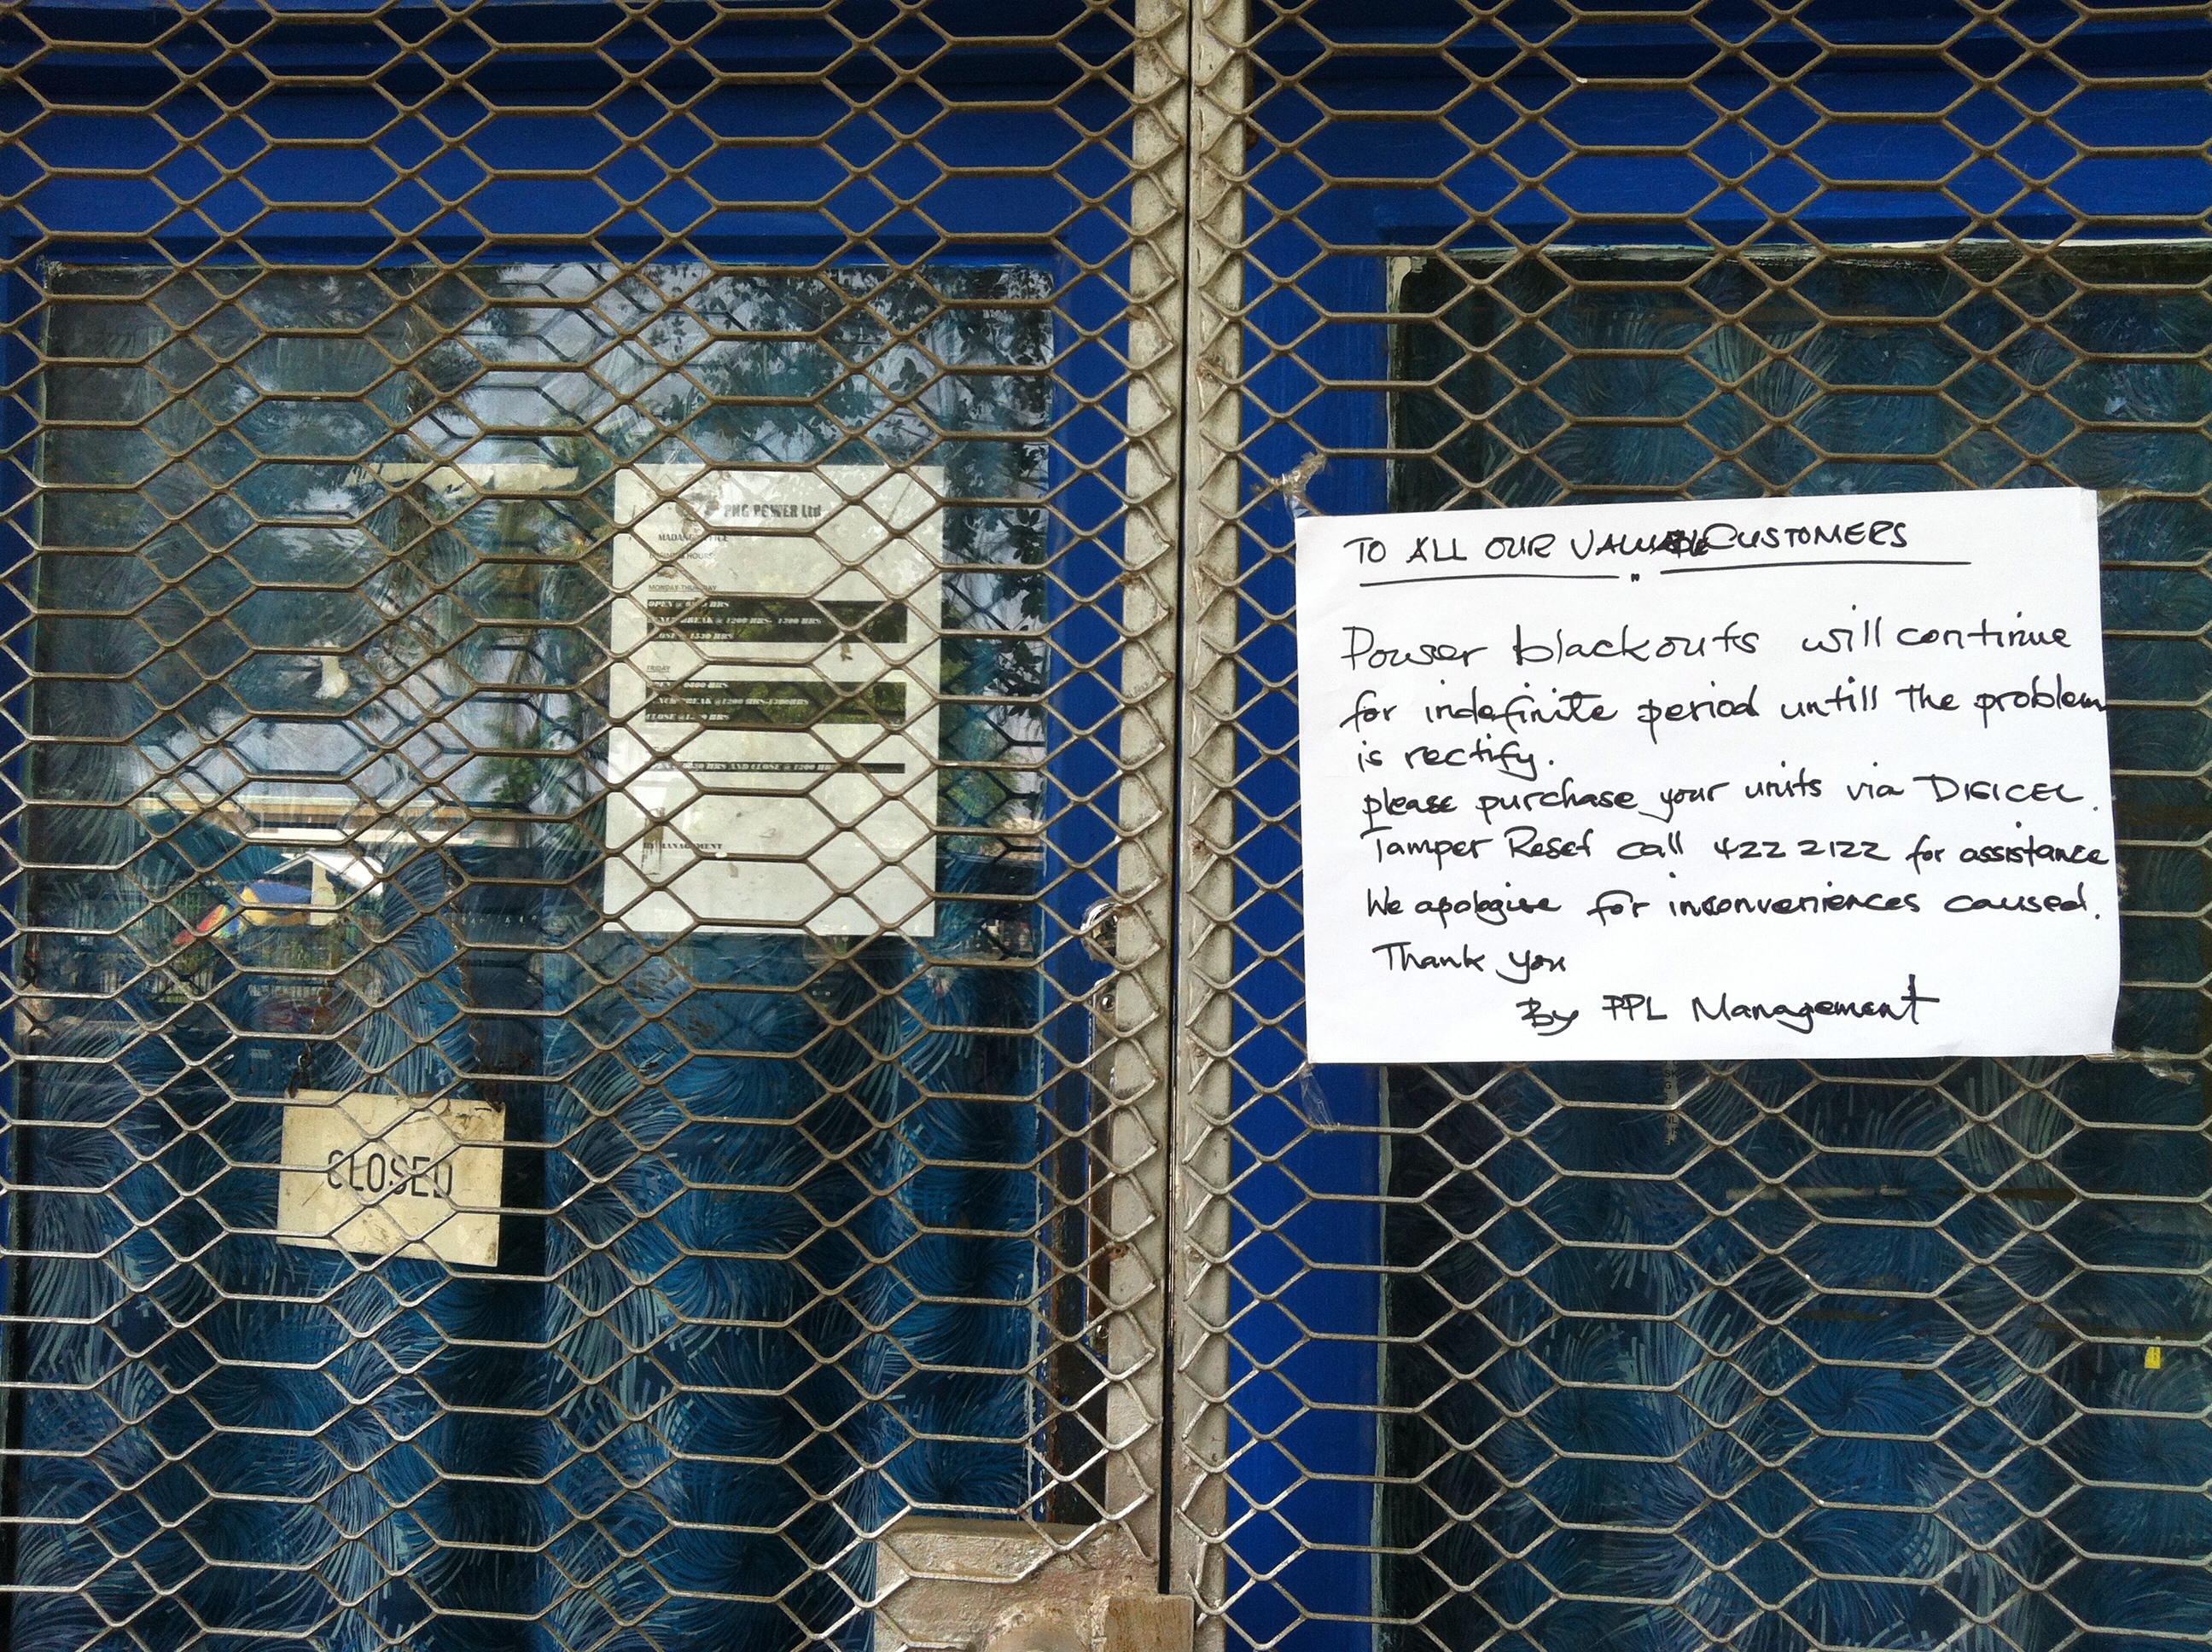 PNG POWER Ltd
MADANG OFFICE
MONDAY-THURSDAY
OPEN @ HRS
BREAK @ 1200 HRS- 1300 HRS
CLOSE 1530 HRS
FRIDAY
0800 HRS
BREAK @1200 HRS-1300HRS
CLOSE HRS
HRS AND CLOSE @ 1200 HRS
BY MANAGEMENT
CLOSED
TO ALL OUR VALUABLE CUSTOMERS
Power blackouts will continue
for indefinite period untill the problem
is rectify.
please purchase your units via DIGICEL.
Tamper Reset call 422 2122 for assistance
We apologise for inconveniences caused.
Thank you
By PPL Management